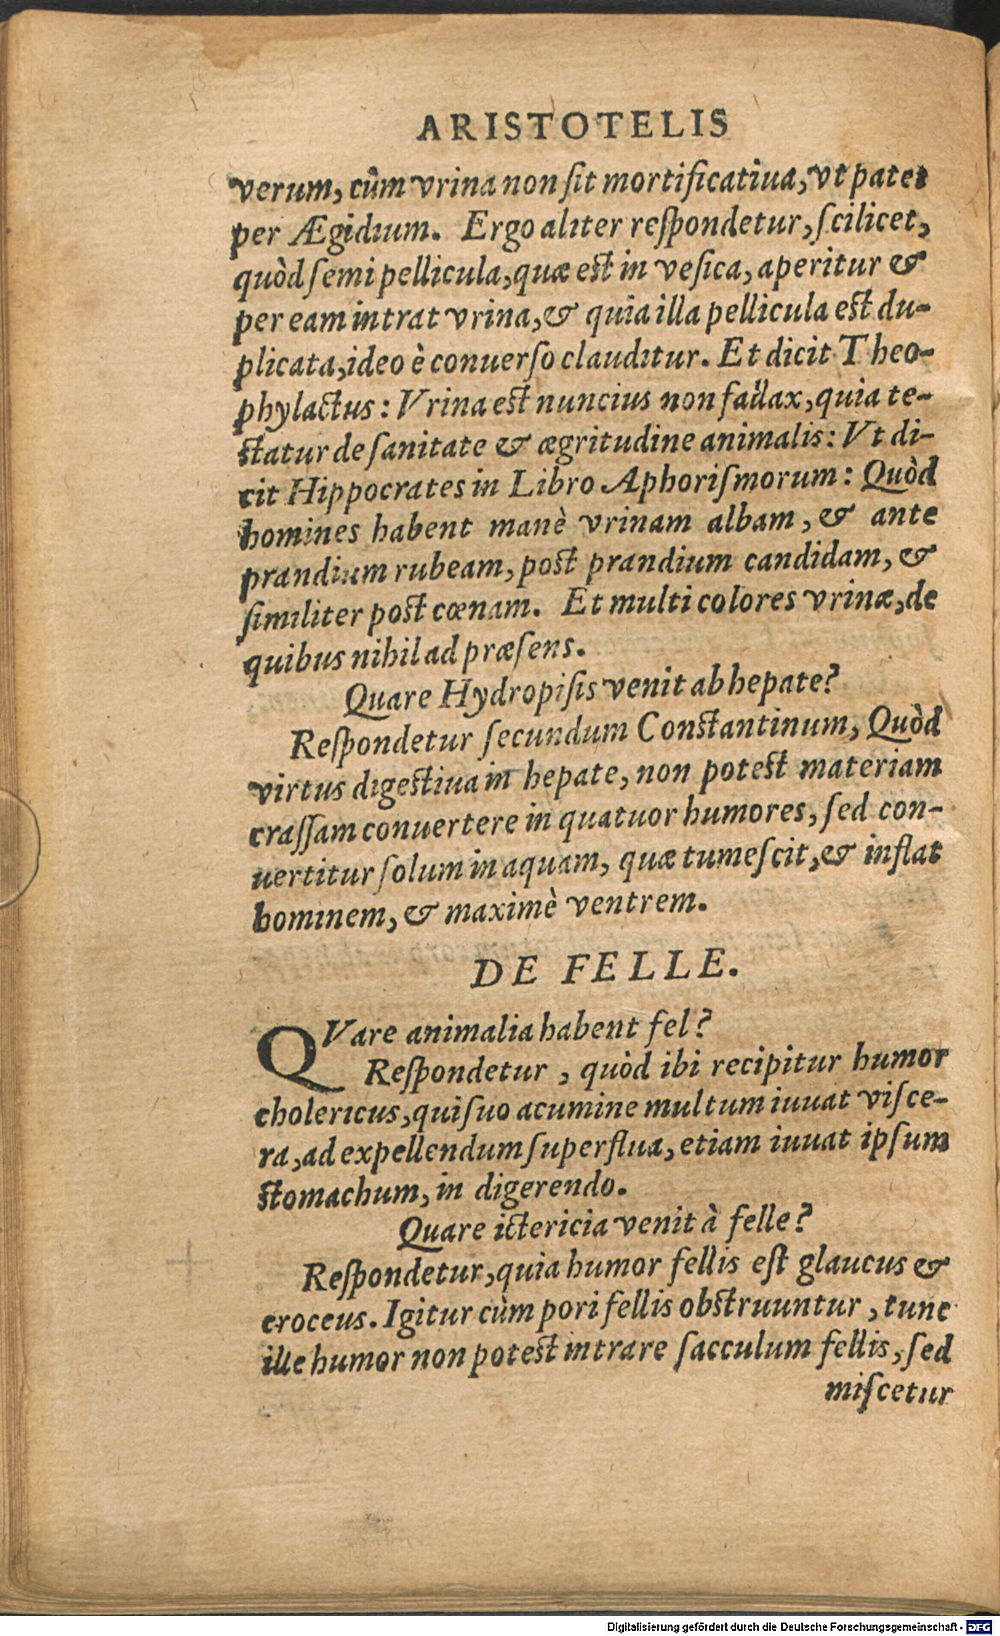 ARISTOTELIS
verum, cûm vrina non ſit mortificatiua, vt patet
per Ægidium. Ergo aliter reſpondetur, ſcilicet,
quòd ſemi pellicula, quæ est in veſica, aperitur &
per eam intrat vrina, & quia illa pellicula est du-
plicata, ideo è conuerſo clauditur. Et dicit Theo-
phylactus: Vrina est nuncius non fallax, quia te-
statur de ſanitate & ægritudine animalis: Vt di-
cit Hippocrates in Libro Aphoriſmorum: Quòd
homines habent manè vrinam albam, & ante
prandium rubeam, post prandium candidam, &
ſimiliter post cœnam. Et multi colores vrinæ, de
quibus nihil ad præſens.
Quare Hydropiſis venit ab hepate?
Reſpondetur ſecundum Constantinum, Quòd
virtus digestiua in hepate, non potest materiam
craſſam conuertere in quatuor humores, ſed con-
uertitur ſolum in aquam, quæ tumeſcit, & inflat
hominem, & maximè ventrem.
DE FELLE.
QVare animalia habent fel?
Reſpondetur, quòd ibi recipitur humor
cholericus, qui ſuo acumine multum iuuat viſce-
ra, ad expellendum ſuperflua, etiam iuuat ipſum
stomachum, in digerendo.
Quare ictericia venit à felle?
Reſpondetur, quia humor fellis eſt glaucus &
croceus. Igitur cùm pori fellis obstruuntur, tunc
ille humor non potest intrare ſacculum fellis, ſed
miſcetur
Digitalisierung gefördert durch die Deutsche Forschungsgemeinschaft - DFG